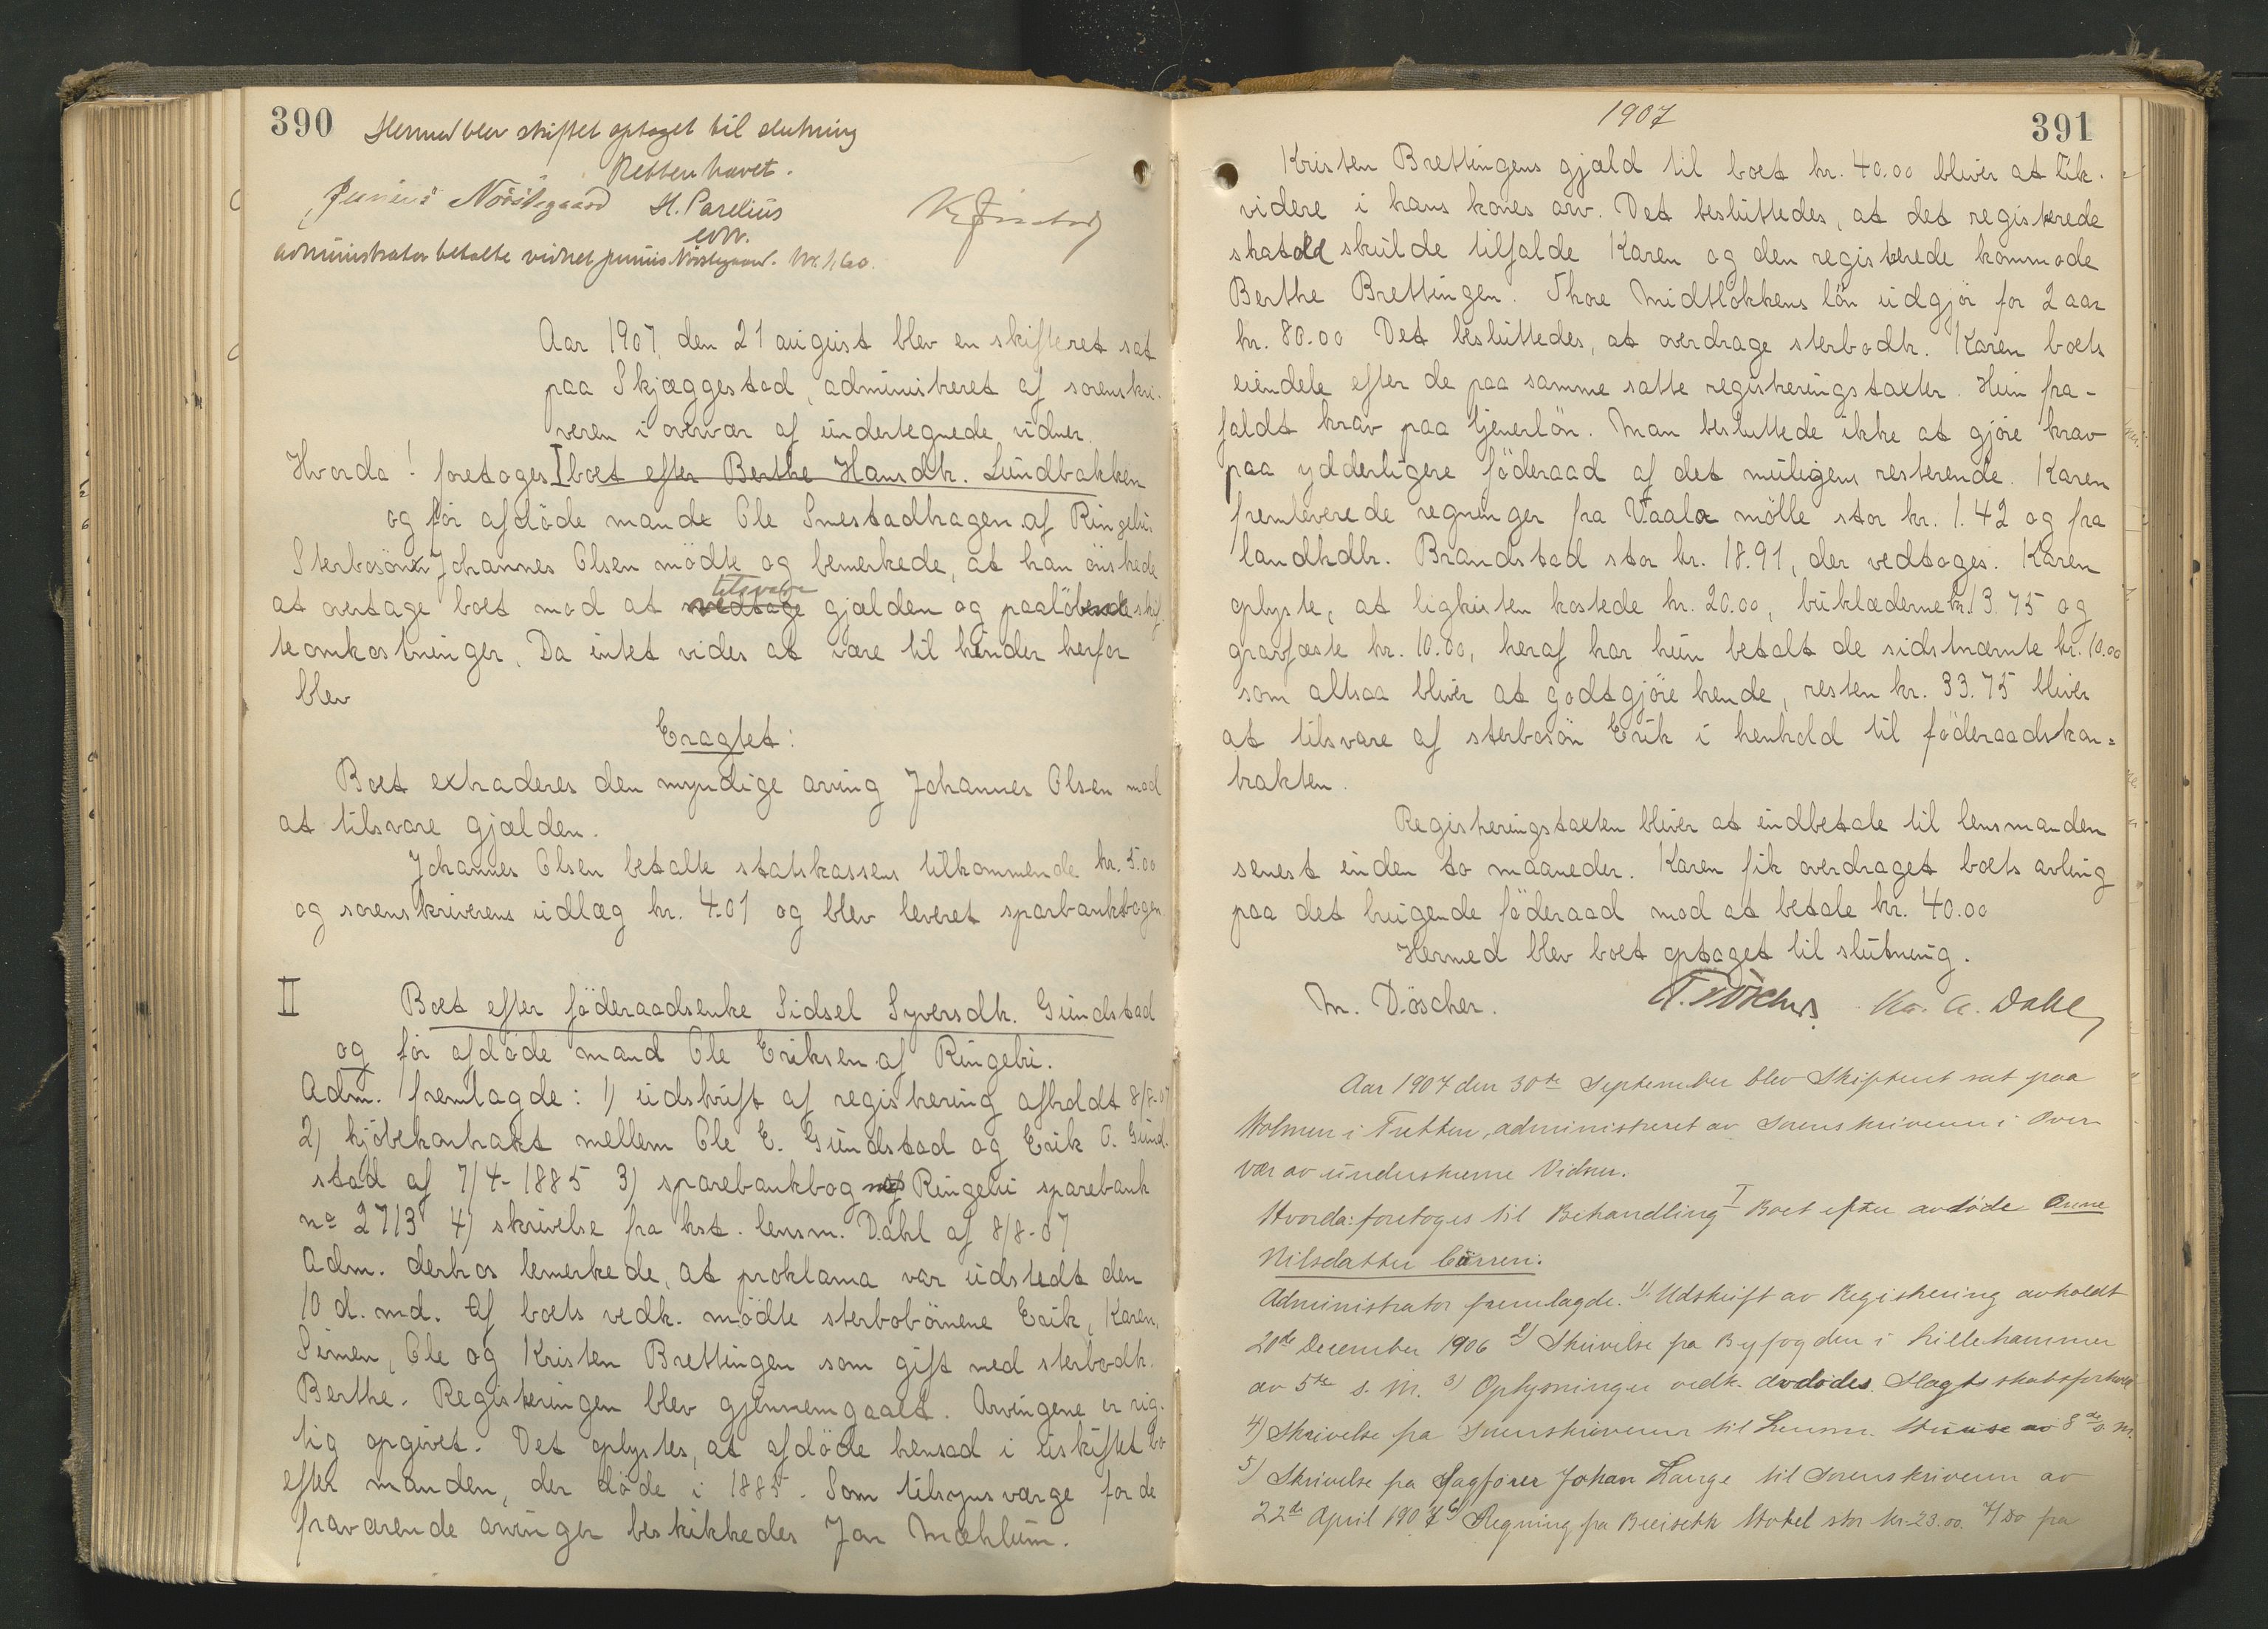 390
Hermed blev skiftet optaget til slutning
Retten hævet.
Junius Nörstegaard H. Parelius
const.
administrator betalte vidnet Junius Nörstegaard. kr. 1,60.
Aar 1907, den 21 august blev en skifteret sat
paa Skjæggestad, administreret af sorenskri-
veren i overvær af undertegnede vidner.
Hvorda! foretoges I boet efter Berthe Hansdtr. Lundbakken
og før afdöde mand Ole Smestadhagen af Ringebu
Sterbosönn Johannes Olsen mödte og bemerkede, at han önskede
at overtage boet mod at vedtage tilsvare gjælden og paalöbende skif-
teomkostninger. Da intet vides at være til hinder herfor
blev
Eragtet:
Boet extraderes den myndige arving Johannes Olsen mod
at tilsvare gjælden.
Johannes Olsen betalte statskassens tilkommende kr. 5.00
og sorenskriverens udlæg kr. 4.01 og blev leveret sparbankbogen.
II Boet efter föderaadsenke Sidsel Syversdtr. Gundstad
og før afdöde mand Ole Eriksen af Ringebu.
Adm. fremlagde: 1) udskrift af registrering afholdt 8/8-07
2) kjöbekontrakt mellem Ole E. Gundstad og Erik O. Gund-
stad af 7/4-1885 3) sparebankbog af Ringebu sparebank
no 2713 4) skrivelse fra kst. lensm. Dahl af 8/8-07
Adm. derhos bemerkede, at proklama var udstedt den
10 d. md. Af boets vedk. mödte sterbobörnene Erik, Karen,
Simen, Ole og Kristen Brettingen som gift med sterbodtr.
Berthe. Registreringen blev gjennemgaaet. Arvingene er rig-
tig opgivet. Det oplystes, at afdöde hensad i uskiftet bo
efter manden, der döde i 1885. Som tilsynsværge for de
fraværende arvinger beskikkedes Jon Mæhlum.
1907
391
Kristen Brettingens gjæld til boet kr. 40.00 bliver at lik-
videre i hans kones arv. Det besluttedes, at det registrerede
skatoll skulde tilfalde Karen og den registrerede kommode
Berthe Brettingen. Thore Midtlökkens lön udgjör for 2 aar
kr. 80.00 Det besluttedes, at overdrage sterbodtr. Karen boets
eiendele efter de paa samme satte registreringstaxter. Hun fra-
faldt krav paa tjenerlön. Man besluttede ikke at gjöre krav
paa ydderligere föderaad af det muligens resterende. Karen
fremleverede regninger fra Vaala mölle stor kr. 1.42 og fra
landhdlr. Brandstad stor kr. 18.91, der vedtoges. Karen
oplyste, at ligkisten kostede kr. 20.00, liklæderne kr. 13.75 og
gravfæste kr. 10.00, heraf har hun betalt de sidstnævnte kr. 10.00
som altsaa bliver at godtgjöre hende, resten kr. 33.75 bliver
at tilsvare af sterbosön Erik i henhold til föderaadskon=
trakten.
Registreringstaxten bliver at indbetale til lensmanden
senest inden to maaneder. Karen fik overdraget boets avling
paa det brugende föderaad mod at betale kr. 40.00
Hermed blev boet optaget til slutning.
M. Döscher. Kr. A. Dahl
Aar 1907 den 30te September blev Skifteret sat paa
Holmen i Tretten, administreret av Sorenskriveren i Over-
vær av underskrevne Vidner.
Hvorda: foretoges til Behandling I Boet efter avdöde Anne
Nilsdatter
Administrator fremlagde. 1) Udskrift av Registrering avholdt
20de December 1906 2) Skrivelse fra Byfogden i Lillehammer
av 5te s. M. 3) Oplysninger vedk. avdödes Slægtsskabsforhold
4) Skrivelse fra Sorenskriveren til Lensm. av 8de s. M.
5) Skrivelse fra Sagförer Johan Lange til Sorenskriveren av
22de April 1907 6) Regning fra Breiseth Hotel stor kr. 23.00. 7) Do fra